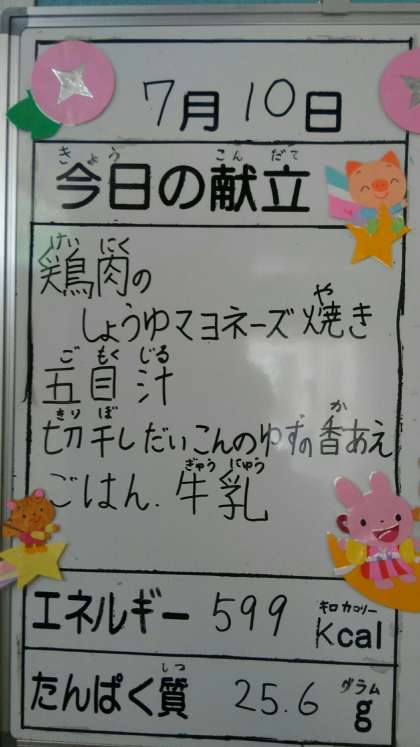 7月10日
きょう こんだて
今日の献立
けいにく
鶏肉の
や
しょうゆマヨネーズ焼き
ご もく じる
五目汁
きり ぼ か
切干しだいこんのゆずの香あえ
ぎゅう にゅう
ごはん.牛乳
キロカロリー
エネルギー 599 kcal
しつ グラム
たんぱく質 25.6 g